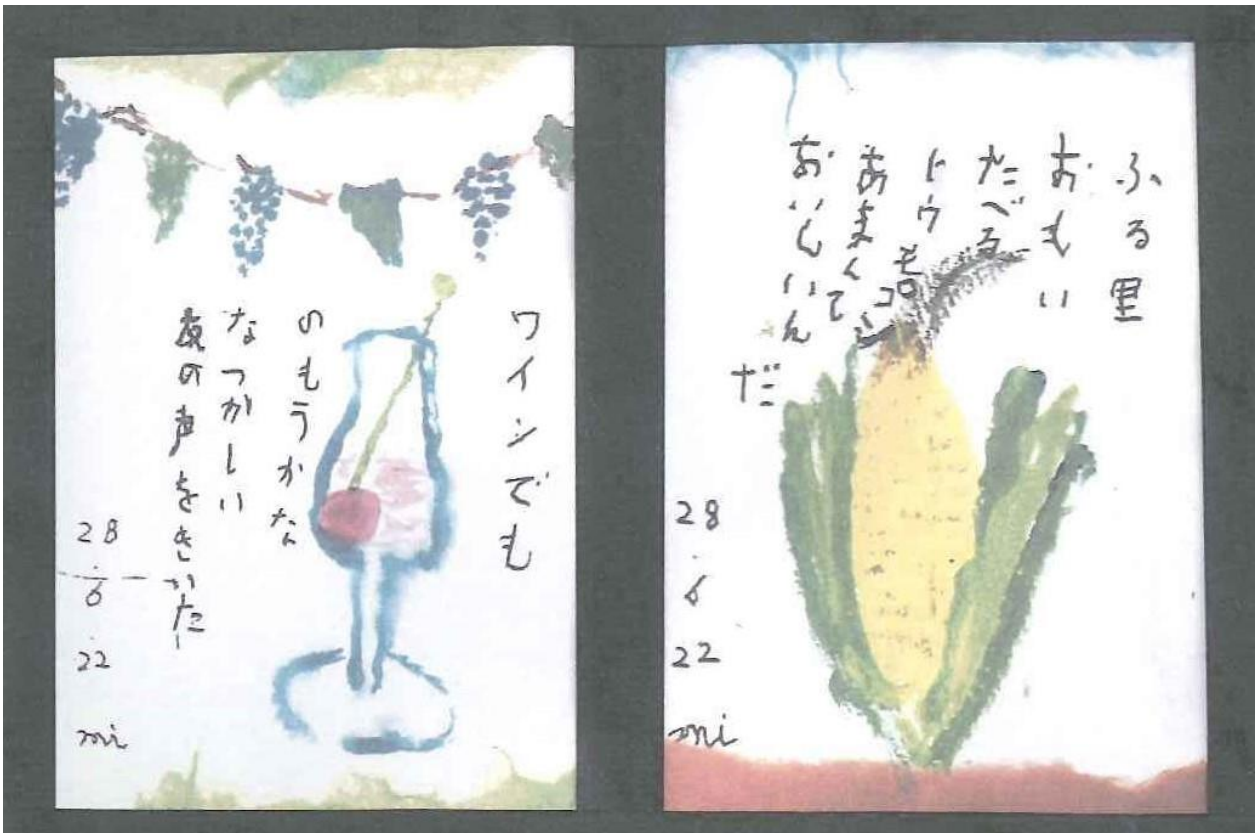 ワインでも
のもうかな
なつかしい
の声をきいた
28.6.22
mi
ふる里
おもい
たべる
トウモロコシ
あまくて
おいしいん
だ
28.6.22
mi